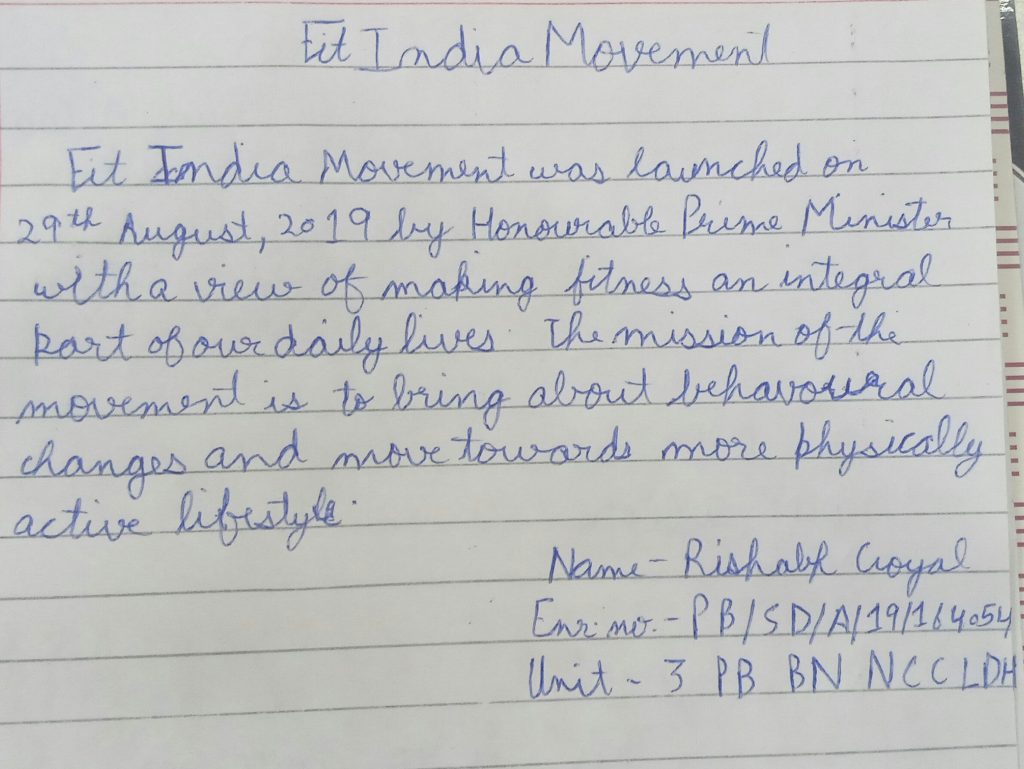 Fit India Movement
Fit India Movement was launched on
29th August, 2019 by Honourable Prime Minister
with a view of making fitness an integral
part of our daily lives. The mission of the
movement is to bring about behavoural
changes and move towards more physically
active lifestyle.
Name - Rishabh Goyal
Enr. no. - PB/SD/A/19/164054
Unit - 3 PB BN NCC LDH